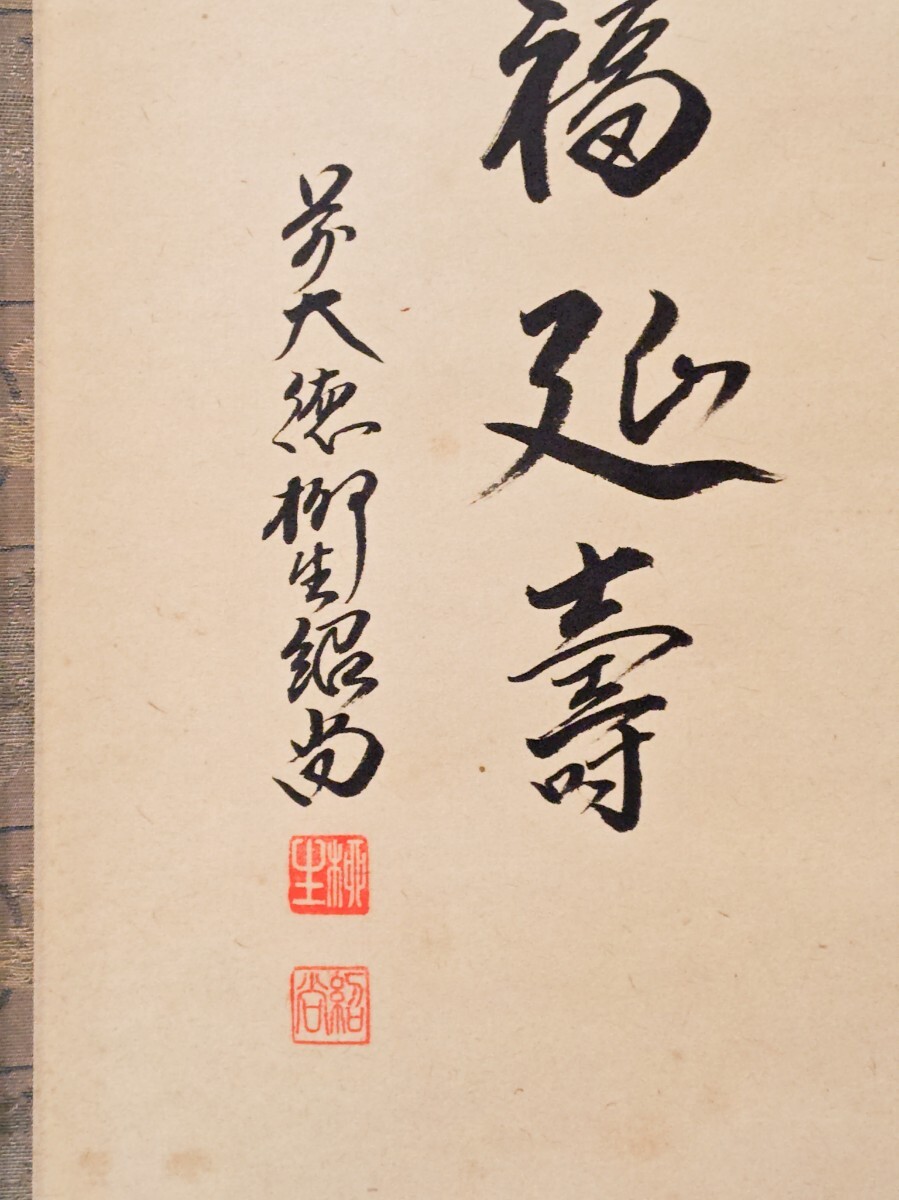 福延壽
前大徳柳生紹尚
柳生
紹尚